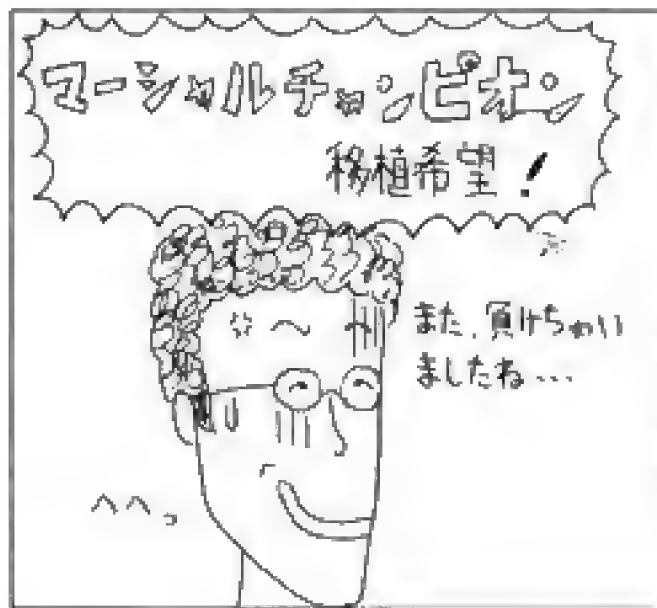 マーシャルチャンピオン
移植希望!
また、負けちゃい
ましたね…
へへっ